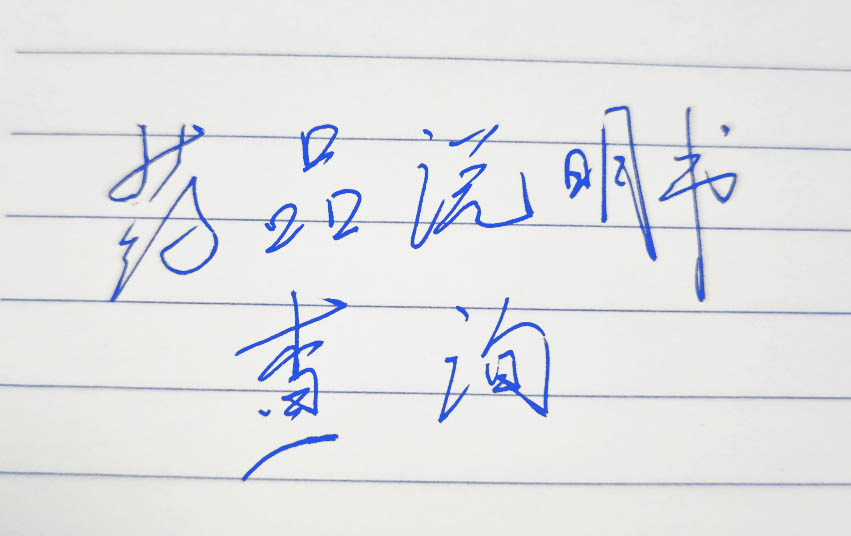 药品说明书
查询